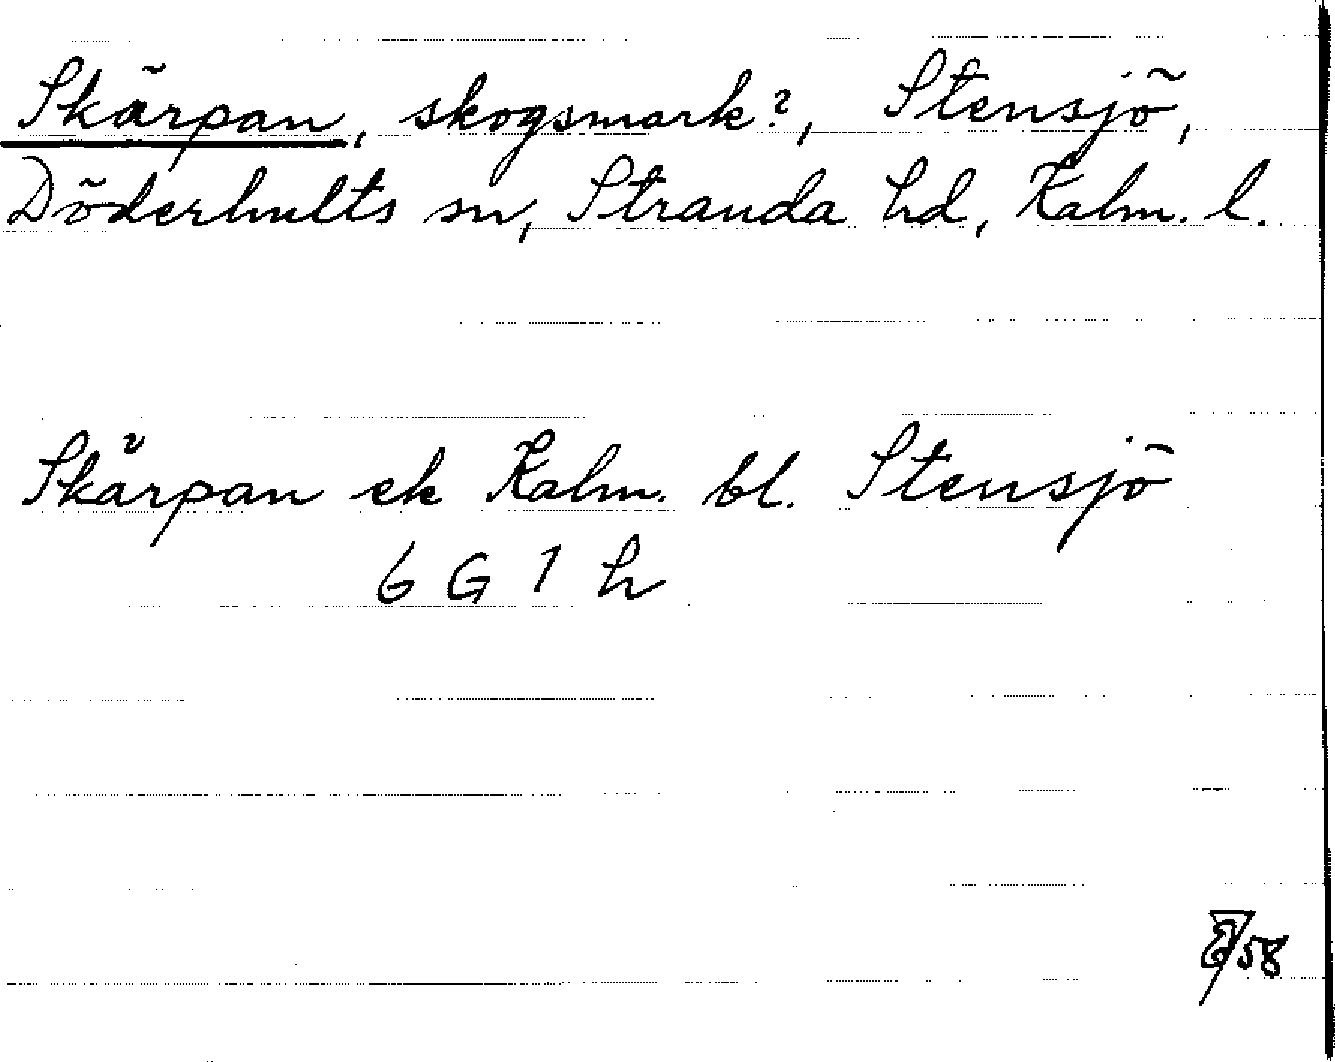 Skärpan, skogsmark?, Stensjö,
Döderhults sn, Stranda hd, Kalm. l.
Skärpan ek Kalm. bl. Stensjö
6 G 1 h
58